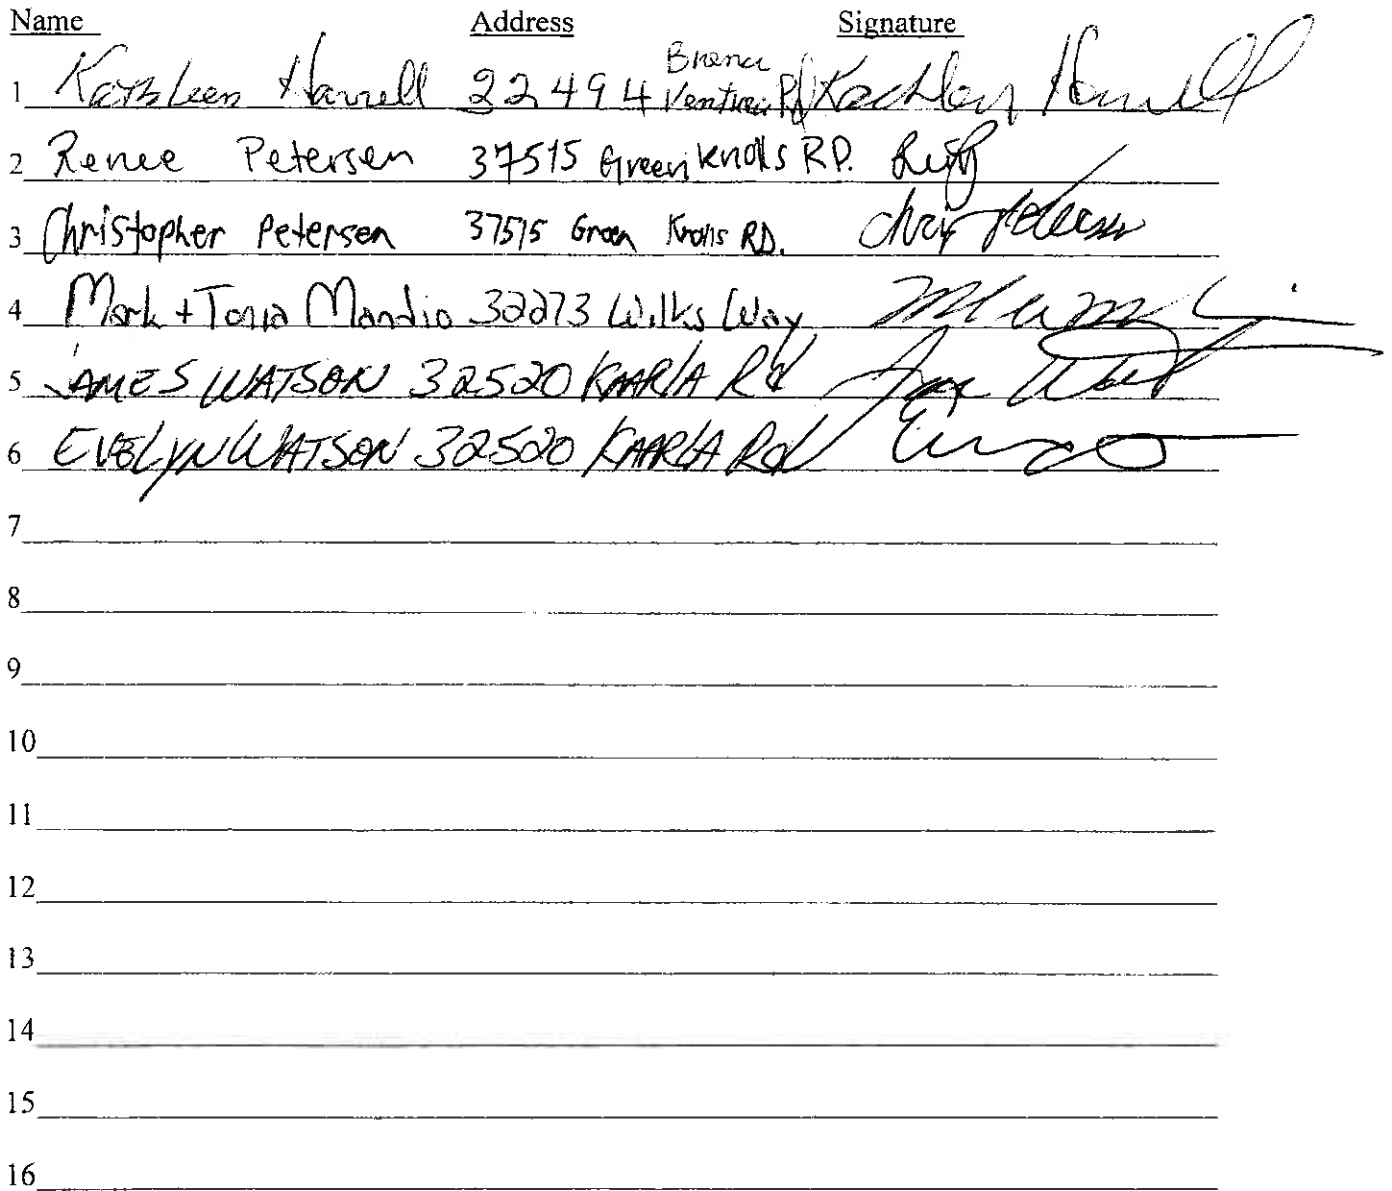 Name Address Signature
1 Kathleen Harrell 22494 Buena Ventura Rd Kathleen Harrell
2 Renee Petersen 37515 Green Knolls RD.
3 Christopher Petersen 37515 Green Knolls RD. Chris Petersen
4 Mark + Tonia Mandio 32273 Wilks Way
5 JAMES WATSON 32520 KAARLA Rd
6 EVELYN WATSON 32520 KAARLA Rd
7
8
9
10
11
12
13
14
15
16